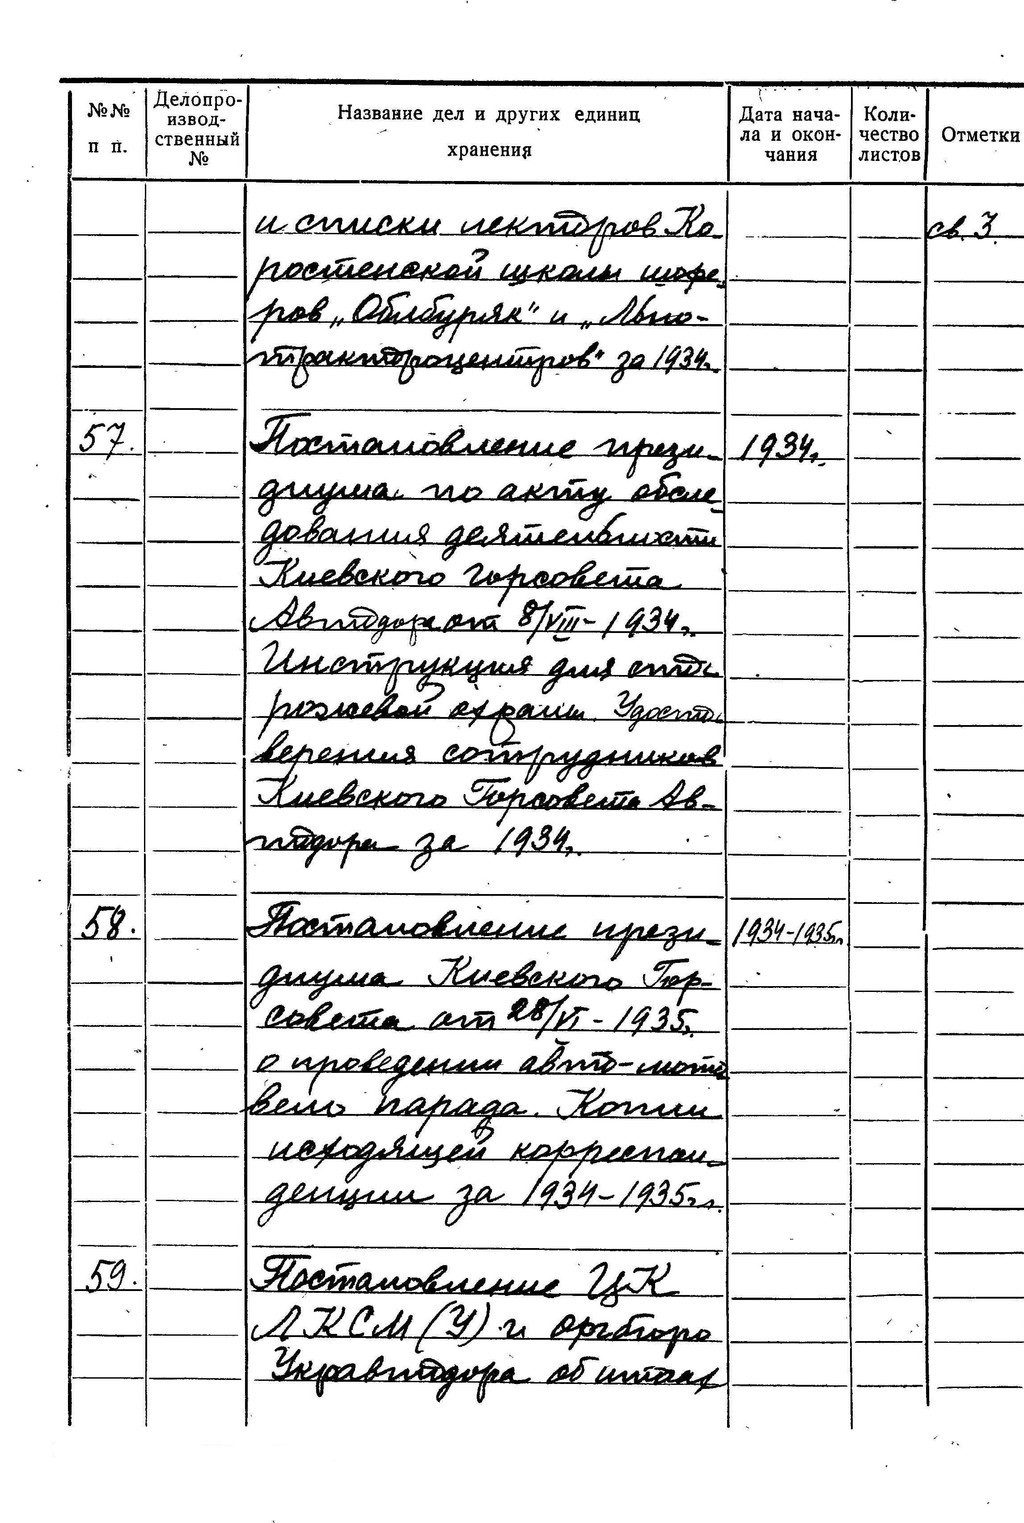 №№ п п.
Делопро-
извод-
ственный
№
Название дел и других единиц
хранения
Дата нача-
ла и окон-
чания
Коли-
чество
листов
Отметки
и списки лекторов Ко- св. 3.
ростенской школы шофе-
ров „Облбуряк" и „Льно-
тракторцентров" за 1934г.
57. Постановление прези- 1934г.
диума по акту обсле-
дования деятельности
Киевского горсовета
Автодора от 8/VIII-1934г.
Инструкция для сто-
рожевой охраны. Удосто-
верения сотрудников
Киевского Горсовета Ав-
тодора за 1934г.
58. Постановление прези- 1934-1935гг.
диума Киевского Гор-
совета от 28/VI-1935г.
о проведении авто-мото
вело парада. Копии
исходящей корреспон-
денции за 1934-1935г.г.
59. Постановление ЦК
ЛКСМ(У) и оргбюро
Укравтодора об итогах